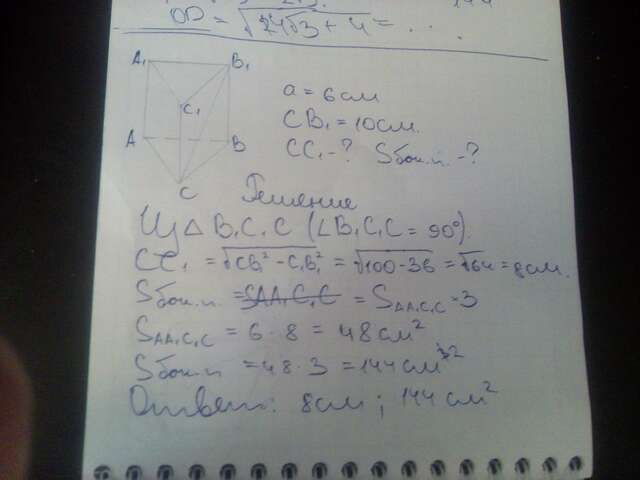 OD = √24√3 + 4 = . . .
144
A₁ B₁
C₁
A B
C
a = 6 см
CB₁ = 10 см.
CC₁ - ? Sбок.п. - ?
Решение
Из △ B₁C₁C (∠B₁C₁C = 90°).
CC₁ = √CB₁² - C₁B₁² = √100 - 36 = √64 = 8 см.
Sбок.п. = SAA₁C₁C = SAA₁C₁C · 3
SAA₁C₁C = 6 · 8 = 48 см²
Sбок.п = 48 · 3 = 144 см²
Ответ: 8 см ; 144 см²